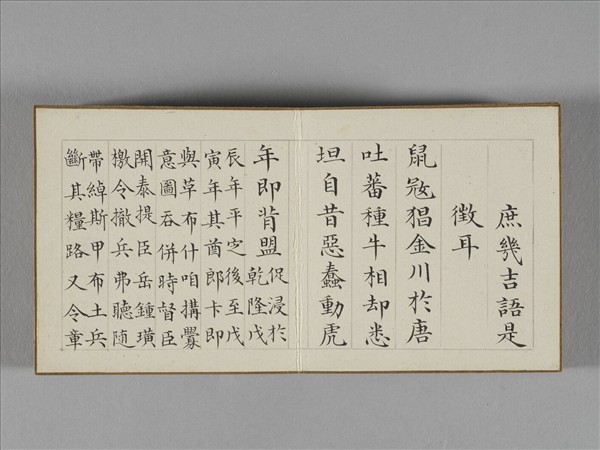 庶幾吉語是
徵耳
鼠㓂猖金川於唐
吐蕃種牛相却悉
坦自昔惡蠢動虎
年即背盟促浸於
乾隆戊
辰年平定後至戊
寅年其酋郎卡即
與草布什咱搆釁
意圖吞併時督臣
開泰提臣岳鍾璜
檄令撤兵弗聽随
帶綽斯甲布土兵
斷其糧路又令章